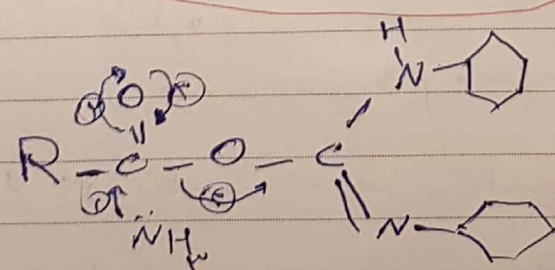 H
N
O
R - C - O - C
NH₂
N